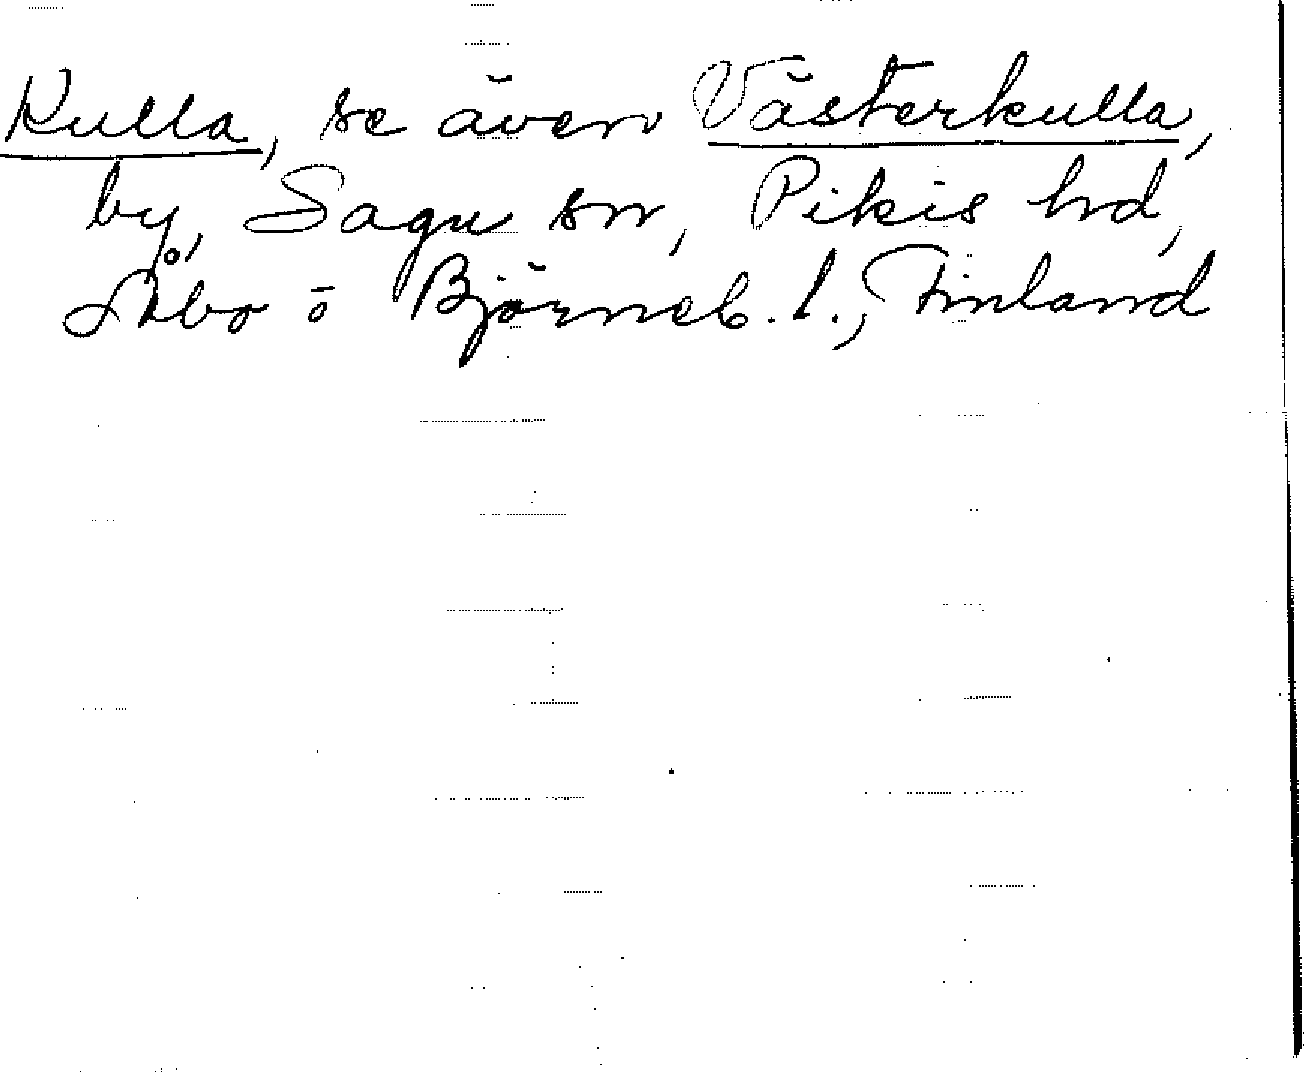 Kulla, se även Västerkulla,
by, Sagu sn, Pikis hrd,
Åbo ō Björneb. l., Finland